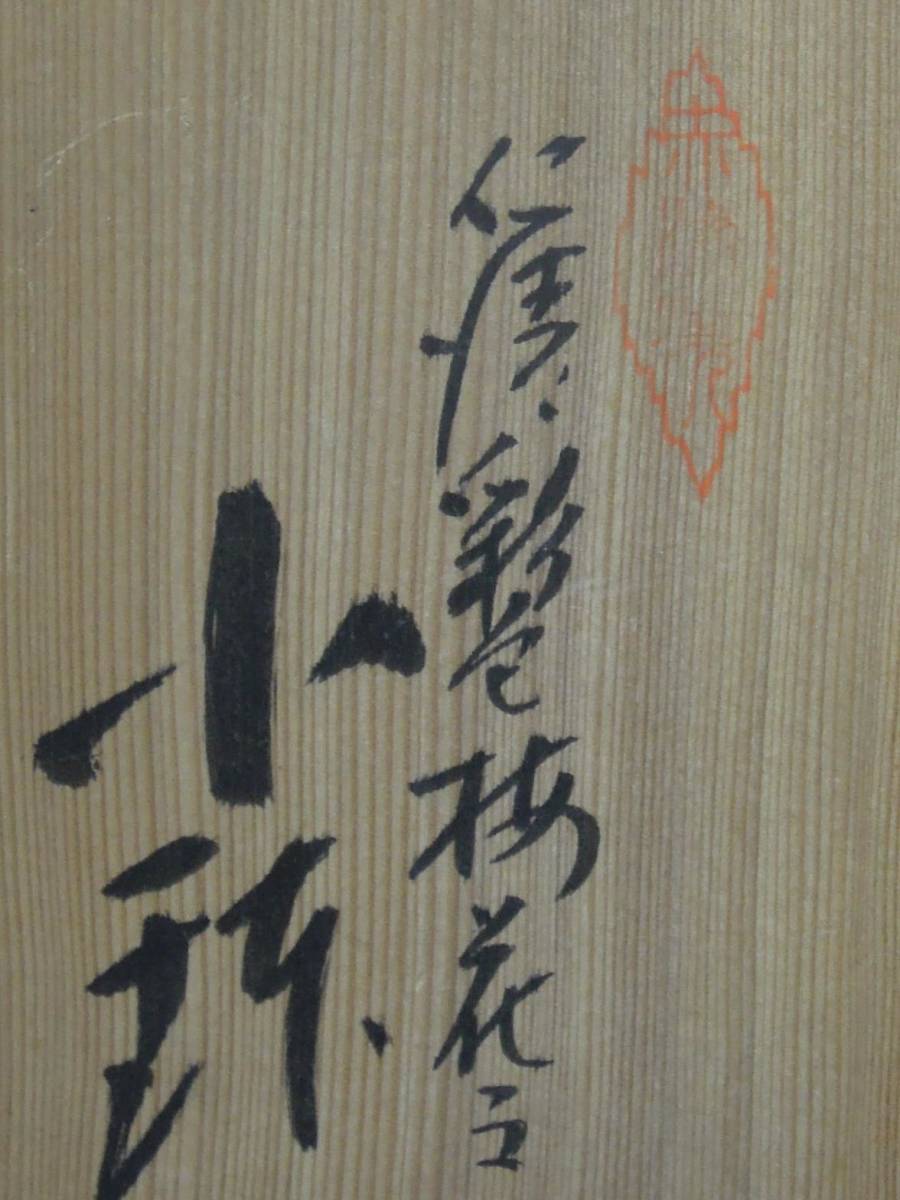 仁清彩色梅花之
小鉢